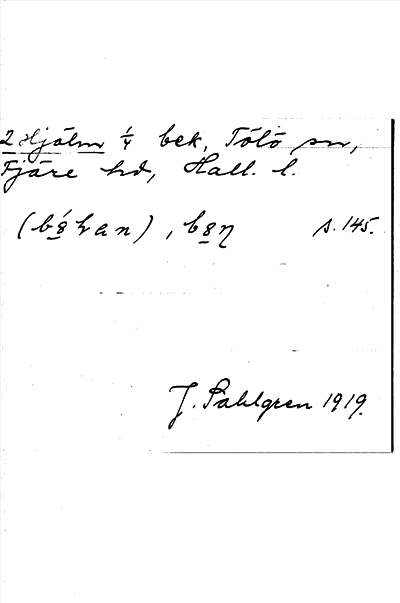 2 Hjälm ¼ bek, Tölö sn,
Fjäre hd, Hall. l.
s. 145.
J. Sahlgren 1919.